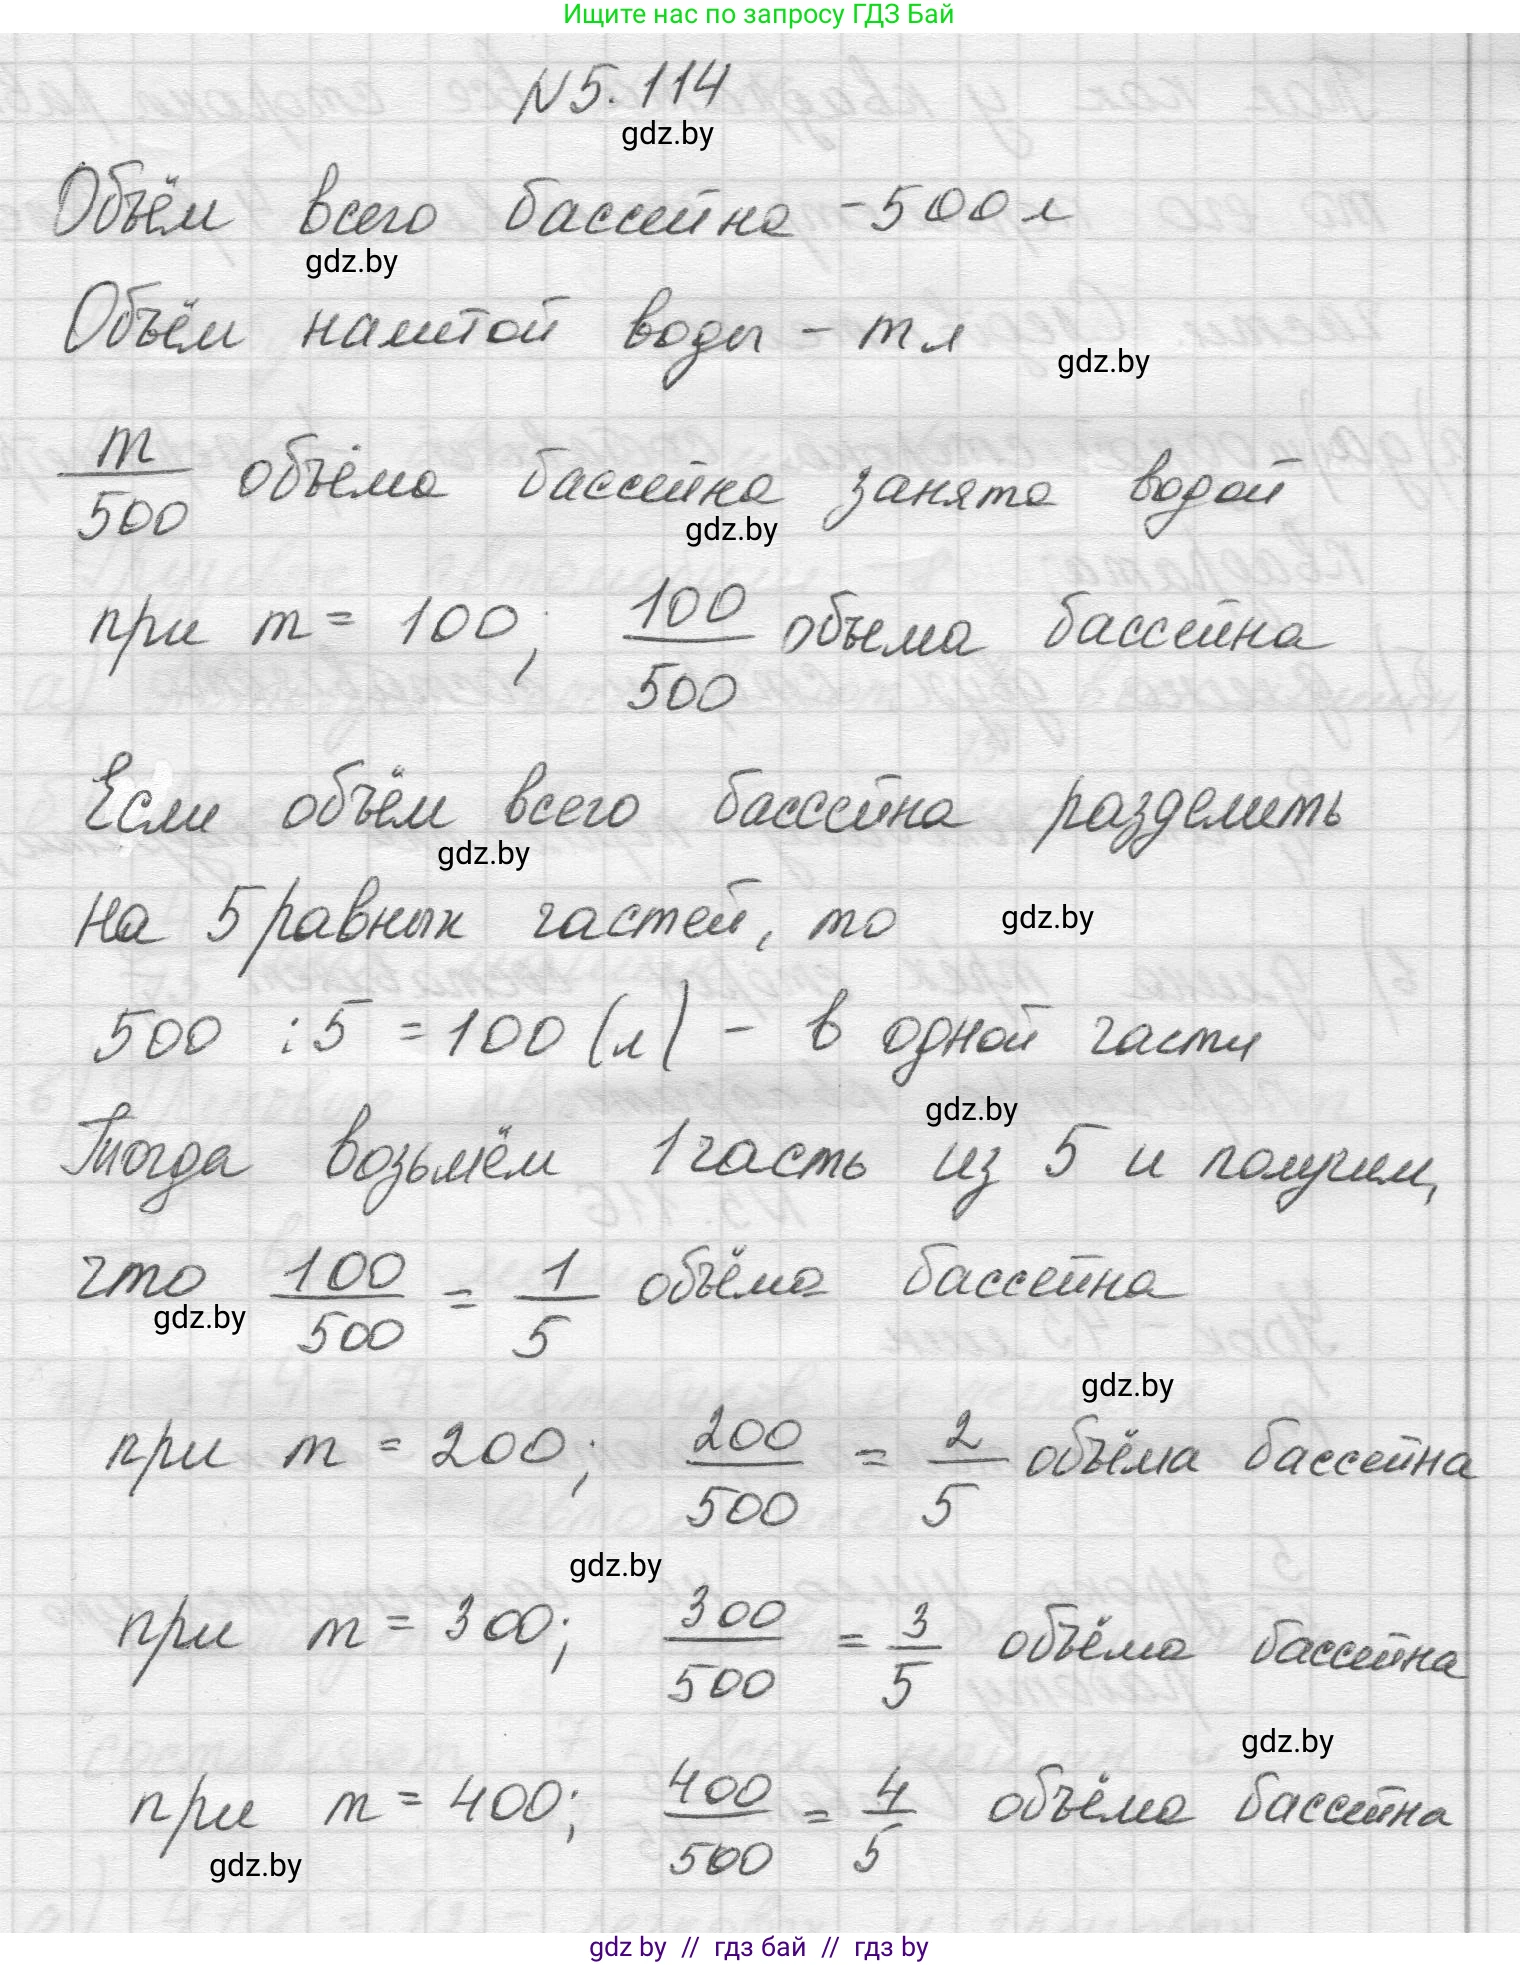 Ищите нас по запросу ГДЗ Бай
N5.114
gdz.by
Объём всего бассейна - 500 л
gdz.by
Объём налитой воды - m л
gdz.by
m/500 объёма бассейна занято водой
gdz.by
при m = 100; 100/500 объема бассейна
Если объём всего бассейна разделить
gdz.by
на 5 равных частей, то
gdz.by
500 : 5 = 100 (л) - в одной части
gdz.by
Тогда возьмём 1 часть из 5 и получим,
что 100/500 = 1/5 объёма бассейна
gdz.by
gdz.by
при m = 200; 200/500 = 2/5 объёма бассейна
gdz.by
при m = 300; 300/500 = 3/5 объёма бассейна
gdz.by
при m = 400; 400/500 = 4/5 объёма бассейна
gdz.by
gdz by // гдз бай // гдз by